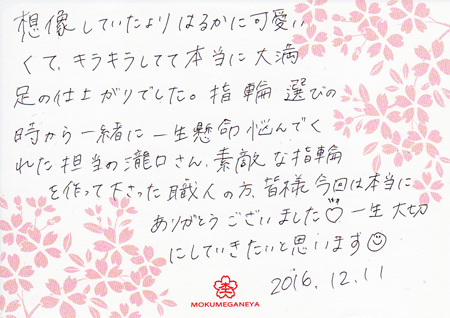 想像していたよりはるかに可愛い
くて、キラキラしてて本当に大満
足の仕上がりでした。指輪選びの
時から一緒に一生懸命悩んでく
れた担当の瀧口さん、素敵な指輪
を作って下さった職人の方、皆様今回は本当に
ありがとうございました♡一生大切
にしていきたいと思います☺
2016.12.11
MOKUMEGANEYA